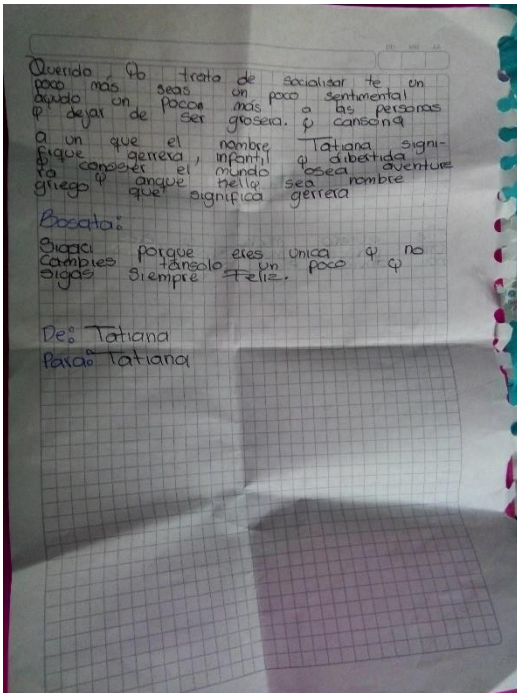 Querido Yo trata de socialisar te un
poco más seas un poco sentimental
ayuda un pocoo más a las personas
y dejar de ser grosera. y cansona
a un que el nombre Tatiana signi-
fique gerrera, infantil y dibertida
conoser el mundo osea aventure
ro
griego y anque bella sea nombre
que significa gerrera
Bosata:
porque eres unica y no
cambies tansolo un poco y
sigas siempre Feliz.
De: Tatiana
Para: Tatiana